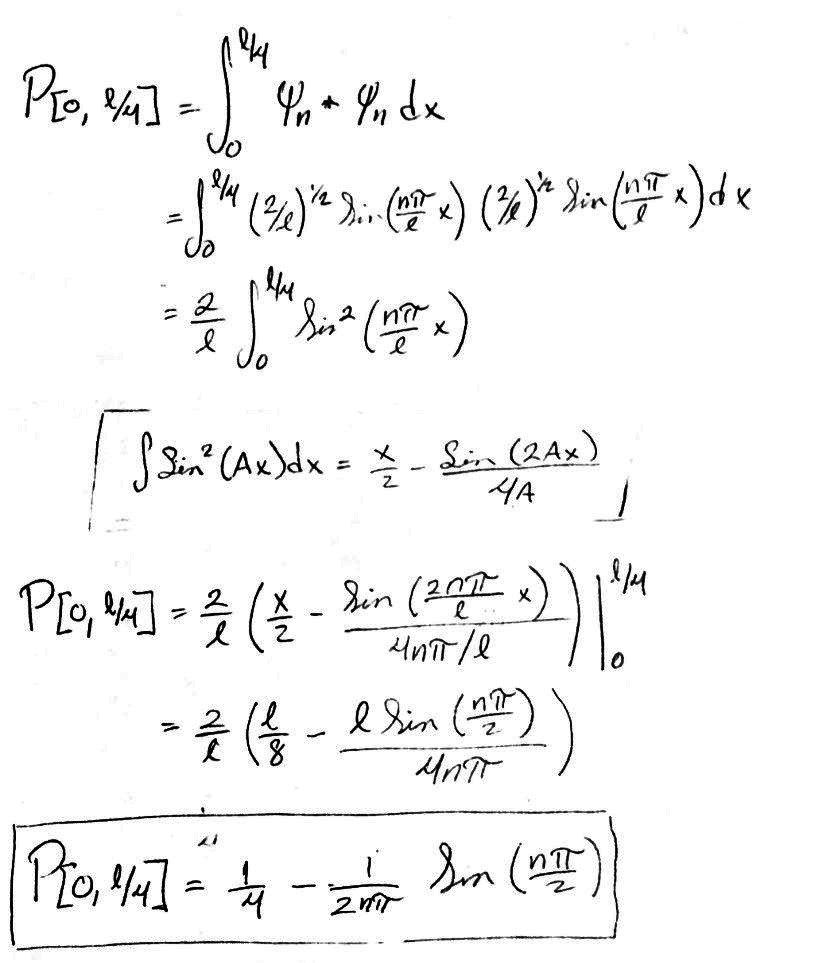 P[0, ℓ/4] = ∫₀^{ℓ/4} ψₙ * ψₙ dx
= ∫₀^{ℓ/4} (2/ℓ)^{1/2} Sin(nπ/ℓ x) (2/ℓ)^{1/2} Sin(nπ/ℓ x) dx
= 2/ℓ ∫₀^{ℓ/4} Sin² (nπ/ℓ x)
∫ Sin² (Ax)dx = x/2 - Sin (2Ax)/4A
P[0, ℓ/4] = 2/ℓ (x/2 - Sin (2nπ/ℓ x)/(4nπ/ℓ)) |₀^{ℓ/4}
= 2/ℓ (ℓ/8 - ℓ Sin (nπ/2)/4nπ)
P[0, ℓ/4] = 1/4 - 1/2nπ Sin (nπ/2)